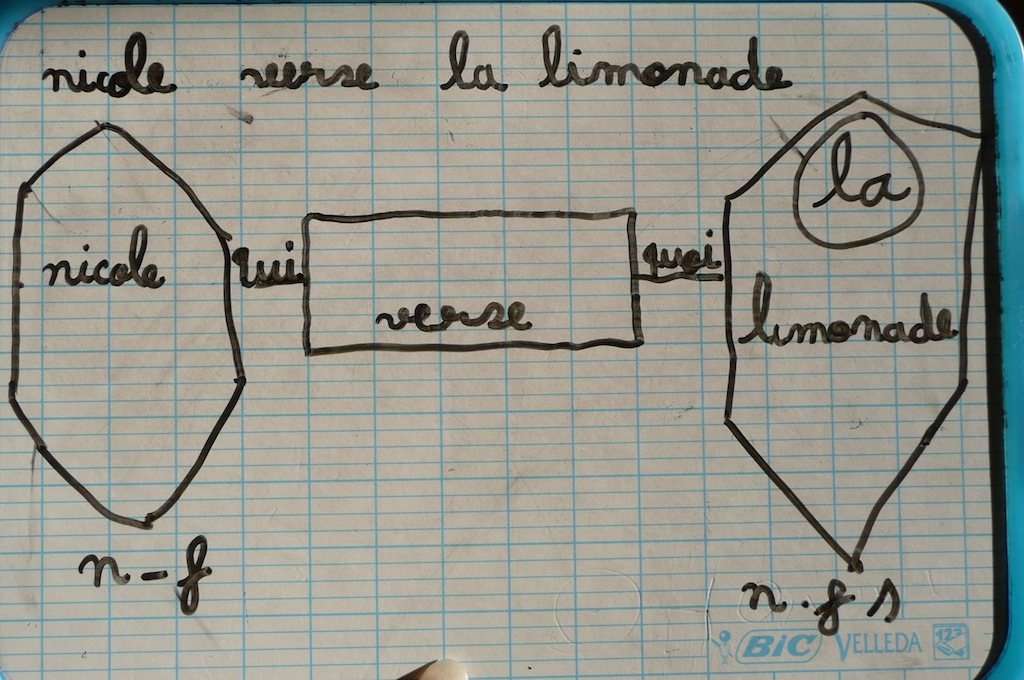 nicole verse la limonade
la
nicole qui verse quoi limonade
n-f
n.f s
BIC VELLEDA 123